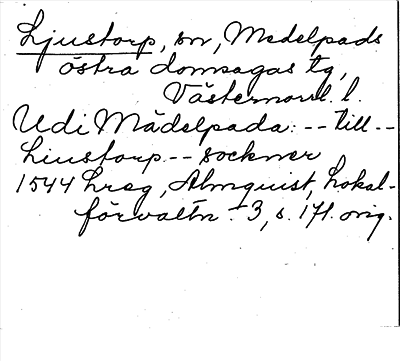 Ljustorp, sn, Medelpads
östra domsagas tg,
Västernorrl. l.
Udi Mädelpada: -- till --
Liustorp -- sockner
1544 hrsg, Almquist, Lokal-
förvaltn. 3, s. 171. orig.